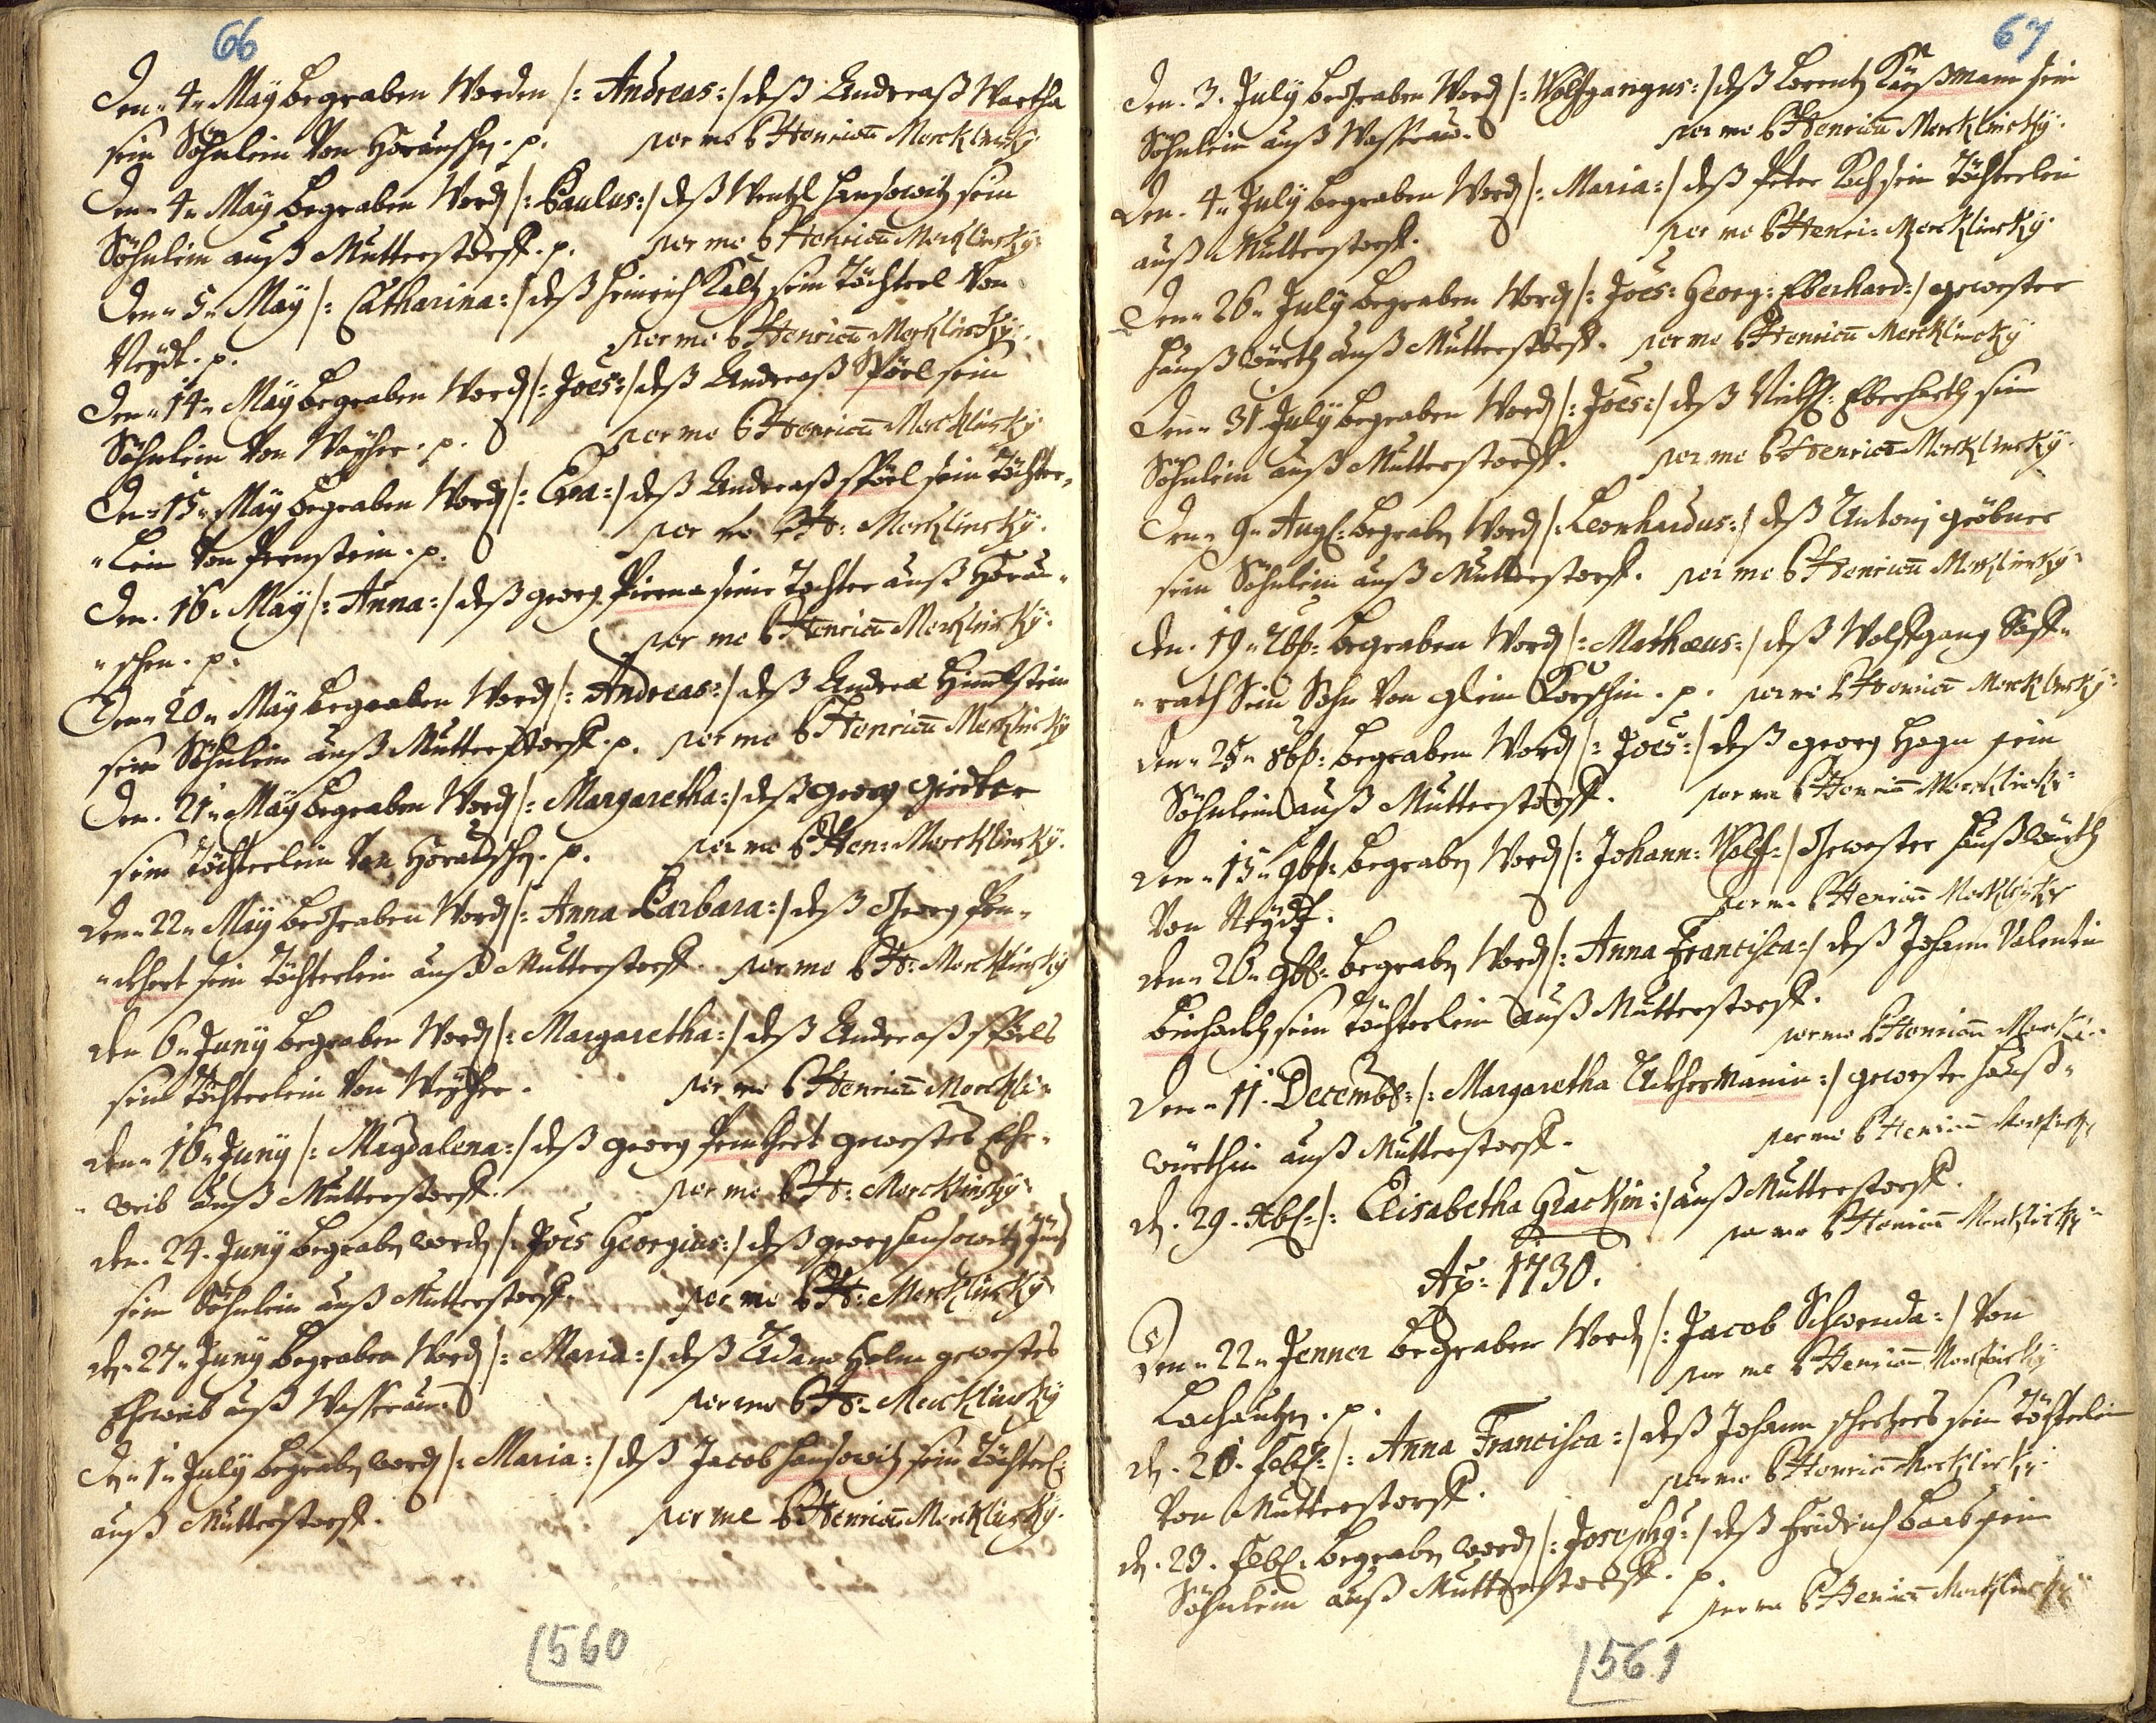 66
Den 4 Maÿ begraben Worden /: Andreas :/ deß Andreaß Wartha
sein Söhnlein Von Horauschn. p. per me P Henricū Mercklinsky.
Den 4 Maÿ begraben Word /: Paulus :/ deß Wentzl Hansowitz sein
Söhnlein auß Mutterstorff. p. per me P Henricū Mercklinsky
Den 5 Maÿ /: Catharina :/ deß Heinrich Kaltz sein Töchterl Von
Neÿd. p. per me P Henricū Mercklinsky.
Den 14 Maÿ begraben Word /: Joēs :/ deß Andreaß Spörl sein
Söhnlein Von Waÿher. p. per me P Henricū Mercklinsky
Den 15 Maÿ begraben Word /: Eva :/ deß Andreaß Spörl sein Töchter-
lein Von Pernstein. p. per me P H: Mercklinsky.
Den 16. Maÿ /: Anna :/ deß georg Pierna seine Tochter auß Horau-
schen. p. per me P Henricū Mercklinsky.
Den 20 Maÿ begraben Word /: Andreas :/ deß Andreæ Himlstein
sein Söhnlein auß Mutterstorff. p. per me P Henricū Mercklinsky
Den 21 Maÿ begraben Word /: Margaretha :/ deß Georg Girther
sein Töchterlein Von Horauschn. p. per me P Hen: Mercklinsky.
Den 22 Maÿ begraben Word /: Anna Barbara :/ deß Georg Pem-
sein Töchterlein auß Mutterstorff. per me P H: Mercklinsky
Den 6 Junÿ begraben Word /: Margaretha :/ deß Andreaß Spörls
sein Töchterlein Von Weÿher. per me P Henricū Merckli-
Den 16 Junÿ /: Magdalena :/ deß georg gewestes Ehe-
weib auß Mutterstorff. per me P H: Mercklinsky
Den 24. Junÿ begrabn word /: Joēs Georgius :/ deß georg Hansowitz Jung
sein Söhnlein auß Mutterstorff. per me P H: Mercklinsky
dn 27 Junÿ begraben Word /: Maria :/ deß Adam Helm gewestes
Eheweib auß Wasserau. per me P H: Mercklinsky
Dn 1 Julÿ begrabn word /: Maria :/ deß Jacob Hansowitz sein Töchterl:
auß Mutterstorff. per me P Henricū Mercklinsky.
1560
67
Den. 3. Julÿ begraben Word /: Wolfgangus :/ deß Lorentz Käÿßmann sein
Söhnlein auß Wasserau. per me P Henricū Mercklinsky.
Den. 4 Julÿ begraben Word /: Maria :/ deß Peter Koch sein Töchterlein
auß Mutterstorff. per me P Henri: Mercklinsky
Den 26 Julÿ begraben Word /: Joēs: Georg: Eberhard :/ gewester
Haußwürth auß Mutterstorff. per me P Henricū Mercklinsky
Den 31 Julÿ begraben Word /: Joēs :/ deß Eberharth sein
Söhnlein auß Mutterstorff. per me P Henricū Mercklinsky.
Den 9 Aug: begrabn Word /: Leonhardus :/ deß Antonj gröbner
sein Söhnlein auß Mutterstorff. per me P Henricū Mercklinsky
Den 19 7bß: begraben Word /: Mathæus :/ deß Wolffgang Sieff-
rath Sein Sohn Von Glein Borschin. p. per me P Henricū Mercklinsky
Den 25 8bß: begraben Word /: Joēs :/ deß georg Hagn sein
Söhnlein auß Mutterstorff. per me P Henricū Mercklinsk:
Den 15 9bß: begrabn Word /: Johann: Wolf :/ Gewester Haußwürth
Von Neÿd. per me P Henricū Mercklinsky
Den 26 9bß: begrabn Word /: Anna Francisca :/ deß Johann Valentin
sein Töchterlein auß Mutterstorff.
per me P Henricū Merckli-
Den 11. Decembß: /: Margaretha Ackhermanin :/ geweste Hauß-
würthin auß Mutterstorff. per me P Henricū Mercklinsky
dn. 29. Xbß: /: Elisabetha Grackin :/ auß Mutterstorff.
per me P Henricū Mercklinsky
Aō: 1730.
Den 22 Jenner begraben Word /: Jacob Schwenda :/ Von
Lochautzn. p. per me P Henricū Mercklinsky
dn. 21. Febß: /: Anna Francisca :/ deß Johann Scherhers sein Töchterlein
Von Mutterstorff. per me P Henricū Mercklinsky.
dn. 23. Febß: begrabn word /: Josephg :/ deß Fridrich Baab sein
Söhnlein auß Mutterstorff. p. per me P Henricū Mercklinsky
1561